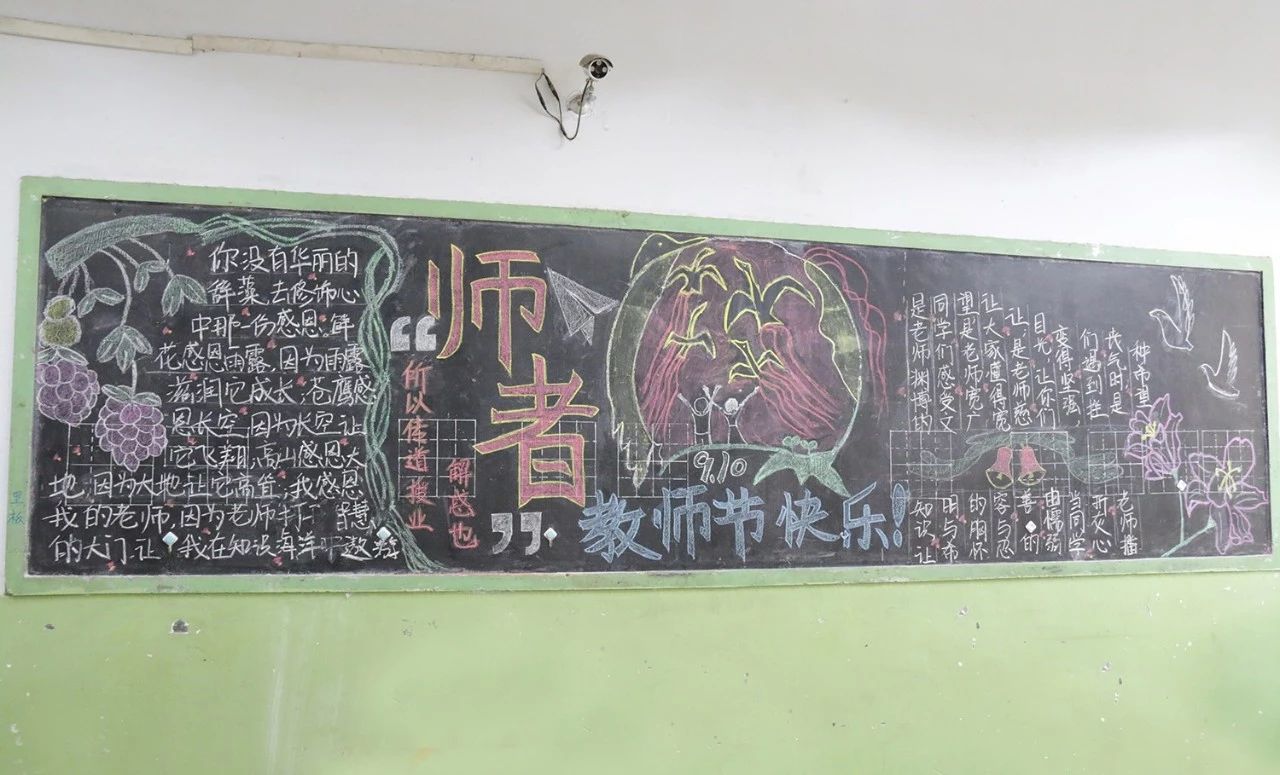 你没有华丽的
辞藻,去修饰心
中那一份感恩.鲜
花感恩雨露,因为雨露
滋润它成长;苍鹰感
恩长空,因为长空让
它飞翔;高山感恩大
地,因为大地让它高耸;我感恩
我的老师,因为老师打开智慧
的大门,让我在知识海洋中遨
黑板
“师者”
所以传道授业
解惑也
9.10
教师节快乐!
是老师渊博的知识,让
同学们感受文明与希
望是老师宽广的胸怀
让大家懂得宽容与忍
让,是老师慈善的
目光,让你们由懦弱
变得坚强,当同学
们遇到挫折灰心
丧气时,是老师播
种希望